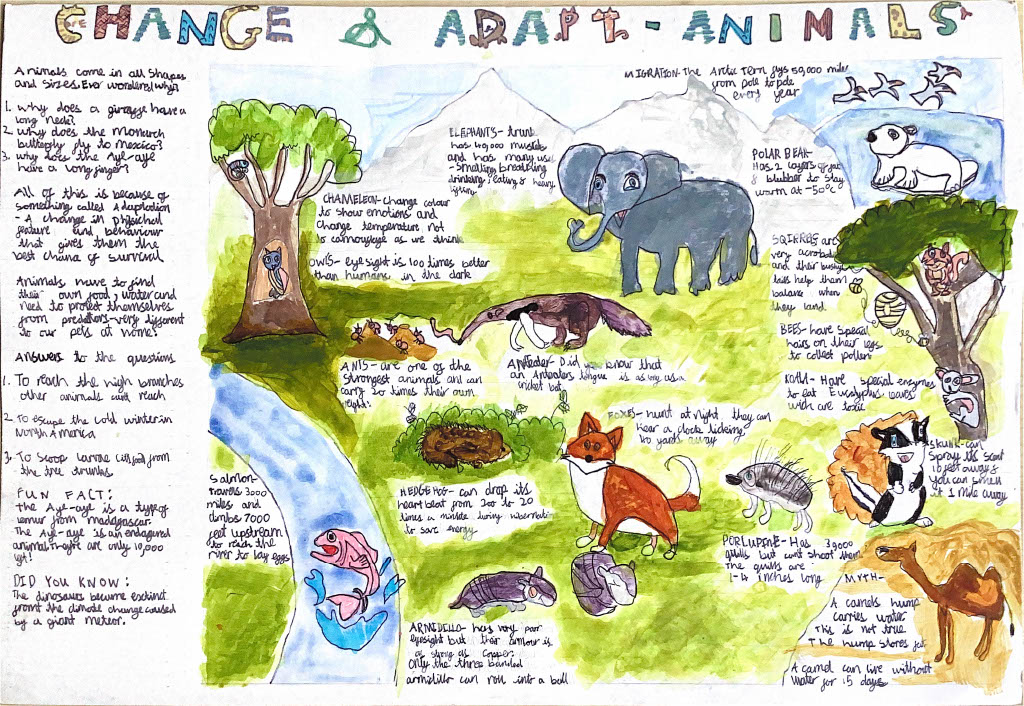 CHANGE & ADAPT - ANIMALS
Animals come in all shapes
and sizes. Ever wondered why:
1. why does a giraffe have a
long neck?
2. why does the Monarch
butterfly fly to Mexico?
3. why does the Aye-aye
have a long finger?
All of this is because of
something called Adaptation
- A change in physical
feature and behaviour
that gives them the
best chance of survival
Animals have to find
their own food, water and
need to protect themselves
from predators - very different
to our pets at home!
Answers to the questions
1. To reach the high branches
other animals cant reach
2. To escape the cold winter in
North America
3. To scoop larvae from
the tree trunks
FUN FACT:
the Aye-aye is a type of
lemur from madagascar.
The Aye-aye is an endagered
animal. There are only 10,000
left!
DID YOU KNOW:
The dinosaurs became extinct
from the climate change caused
by a giant meteor.
MIGRATION - The Arctic Tern flys 50,000 miles
from pole to pole
every year
ELEPHANTS - trunk
has 40,000 muscles
and has many use
- smelling, breathing
drinking, eating & heavy
lifting
POLAR BEAR -
Has 2 layers of fur
& blubber to stay
warm at -50°c
CHAMELEON - change colour
to show emotions and
change temperature not
to camouflage as we think
OWLS - eye sight is 100 times better
than humans in the dark
SQIRRELS are
very acrobatic
and their bushy
tails help them
balance when
they land
BEES - have special
hairs on their legs
to collect pollen
ANTS - are one of the
strongest animals and can
carry 20 times their own
weight!
Anteater - Did you know that
an Anteaters tongue is as long as a
cricket bat
KOALA - Have special enzymes
to eat Eucalyptus leaves
wich are toxic
FOXES - hunt at night they can
hear a clock ticking
40 yards away
SKUNK - can
spray its scent
10 feet away &
you can smell
it 1 mile away
Salmon -
travels 3000
miles and
climbs 7000
feet upstream
to reach the
river to lay eggs
HEDGEHOG - can drop its
heart beat from 200 to 20
times a minute during hibernation
to save energy.
PORCUPINE - Has 30,000
quills but cant shoot them
The quills are
1-4 inches long
MYTH -
A camels hump
carries water
This is not true
The hump stores fat
A camel can live without
water for 15 days
ARMIDILLO - has very poor
eyesight but their armour is
as strong as copper.
Only the three banded
armidillo can roll into a ball